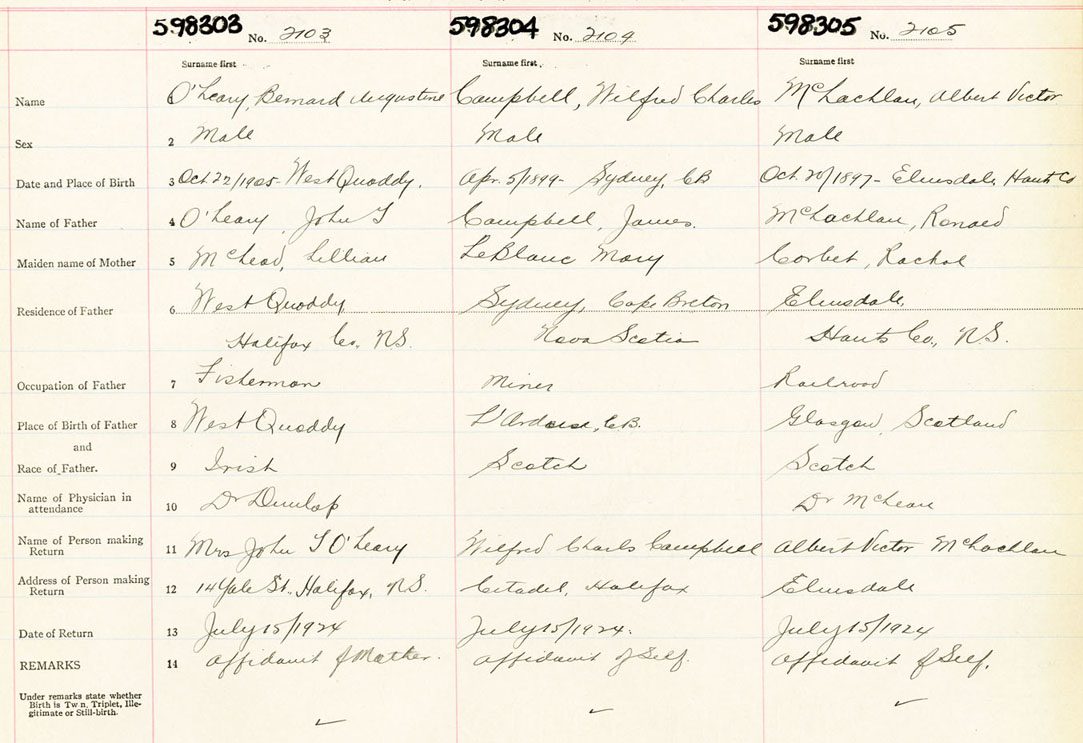 598303 No. 2103 598304 No. 2104 598305 No. 2105
Surname first Surname first Surname first
Name 1 O'Leary, Bernard Augustine Campbell, Wilfred Charles McLachlan, Albert Victor
Sex 2 Male Male Male
Date and Place of Birth 3 Oct 22/1905 - West Quoddy. Apr. 5/1899 - Sydney, CB Oct. 20/1897 - Elmsdale, Hants Co
Name of Father 4 O'Leary, John Campbell, James. McLachlan, Ronald
Maiden name of Mother 5 McLeod, Lillian LeBlanc Mary Corbet, Rachel
Residence of Father 6 West Quoddy, Sydney, Cape Breton Elmsdale,
Halifax Co., NS. Nova Scotia Hants Co., NS.
Occupation of Father 7 Fisherman Miner Railroad
Place of Birth of Father 8 West Quoddy L'Ardoise, CB. Glasgow, Scotland
and
Race of Father. 9 Irish Scotch Scotch
Name of Physician in
attendance 10 Dr Dunlop Dr McLean
Name of Person making
Return 11 Mrs John O'Leary Wilfred Charles Campbell Albert Victor McLachlan
Address of Person making
Return 12 14 Yale St., Halifax, NS. Citadel, Halifax Elmsdale
Date of Return 13 July 15/1924 July 15/1924. July 15/1924
REMARKS 14 Affidavit of Mother. Affidavit of Self. Affidavit of Self.
Under remarks state whether
Birth is Twn, Triplet, Ille-
gitimate or Still-birth.